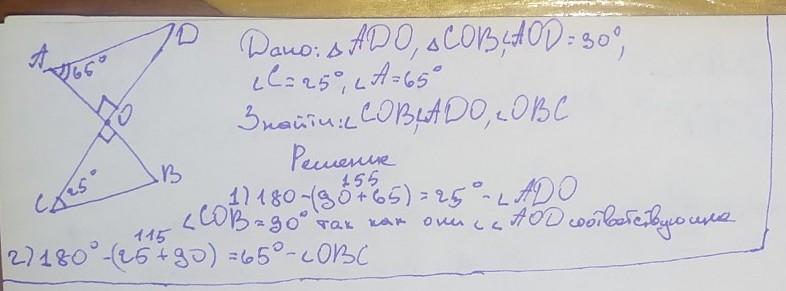 A
D
65°
O
25°
C
B
Дано: △ ADO, △COB, ∠AOD = 90°,
∠C = 25°, ∠A = 65°
Знайти: ∠COB, ∠ADO, ∠OBC
Решение
155
1) 180 - (90 + 65) = 25° - ∠ADO
∠COB = 90° так как они с ∠AOD соответствующие
115
2) 180° - (25 + 90) = 65° - ∠OBC